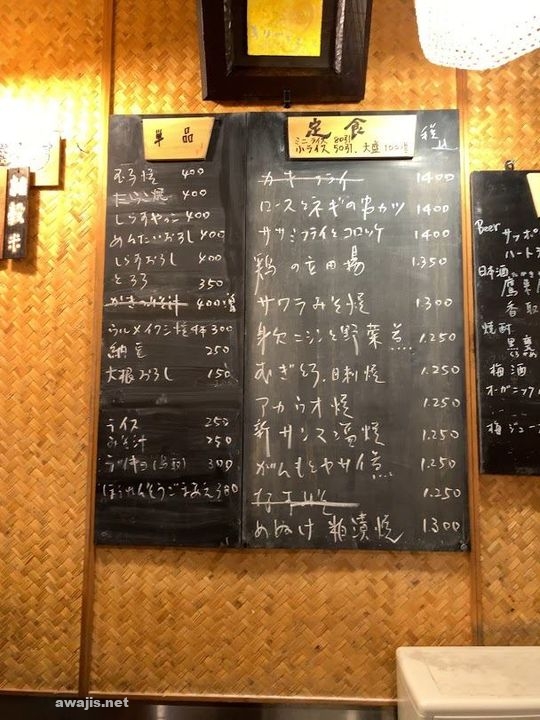 単品
400
たらこ焼 400
しらすやっこ 400
めんたいおろし 400
しらすおろし 400
とろろ 350
かきのみそ汁 400
ウルメイワシ焼 300
納豆 250
大根おろし 150
ライス 250
みそ汁 250
300
ほうれんそうごまあえ 300
定食
ミニライス 80引
小ライス 50引、大盛 100増
税
カキフライ 1400
ロースとネギの串カツ 1400
ササミフライとコロッケ 1400
鶏の立田揚 1.350
サワラみそ焼 1.300
身欠ニシンと野菜煮 1.250
むぎとろ、目刺焼 1.250
アカウオ焼 1.250
新サンマ塩焼 1.250
がんもとヤサイ煮 1.250
1.250
めぬけ粕漬焼 1300
雑穀米
Beer
サッポ
ハートラ
日本酒
香取
焼酎
黒甕
梅酒
オーガニック
梅ジュー
awajis.net